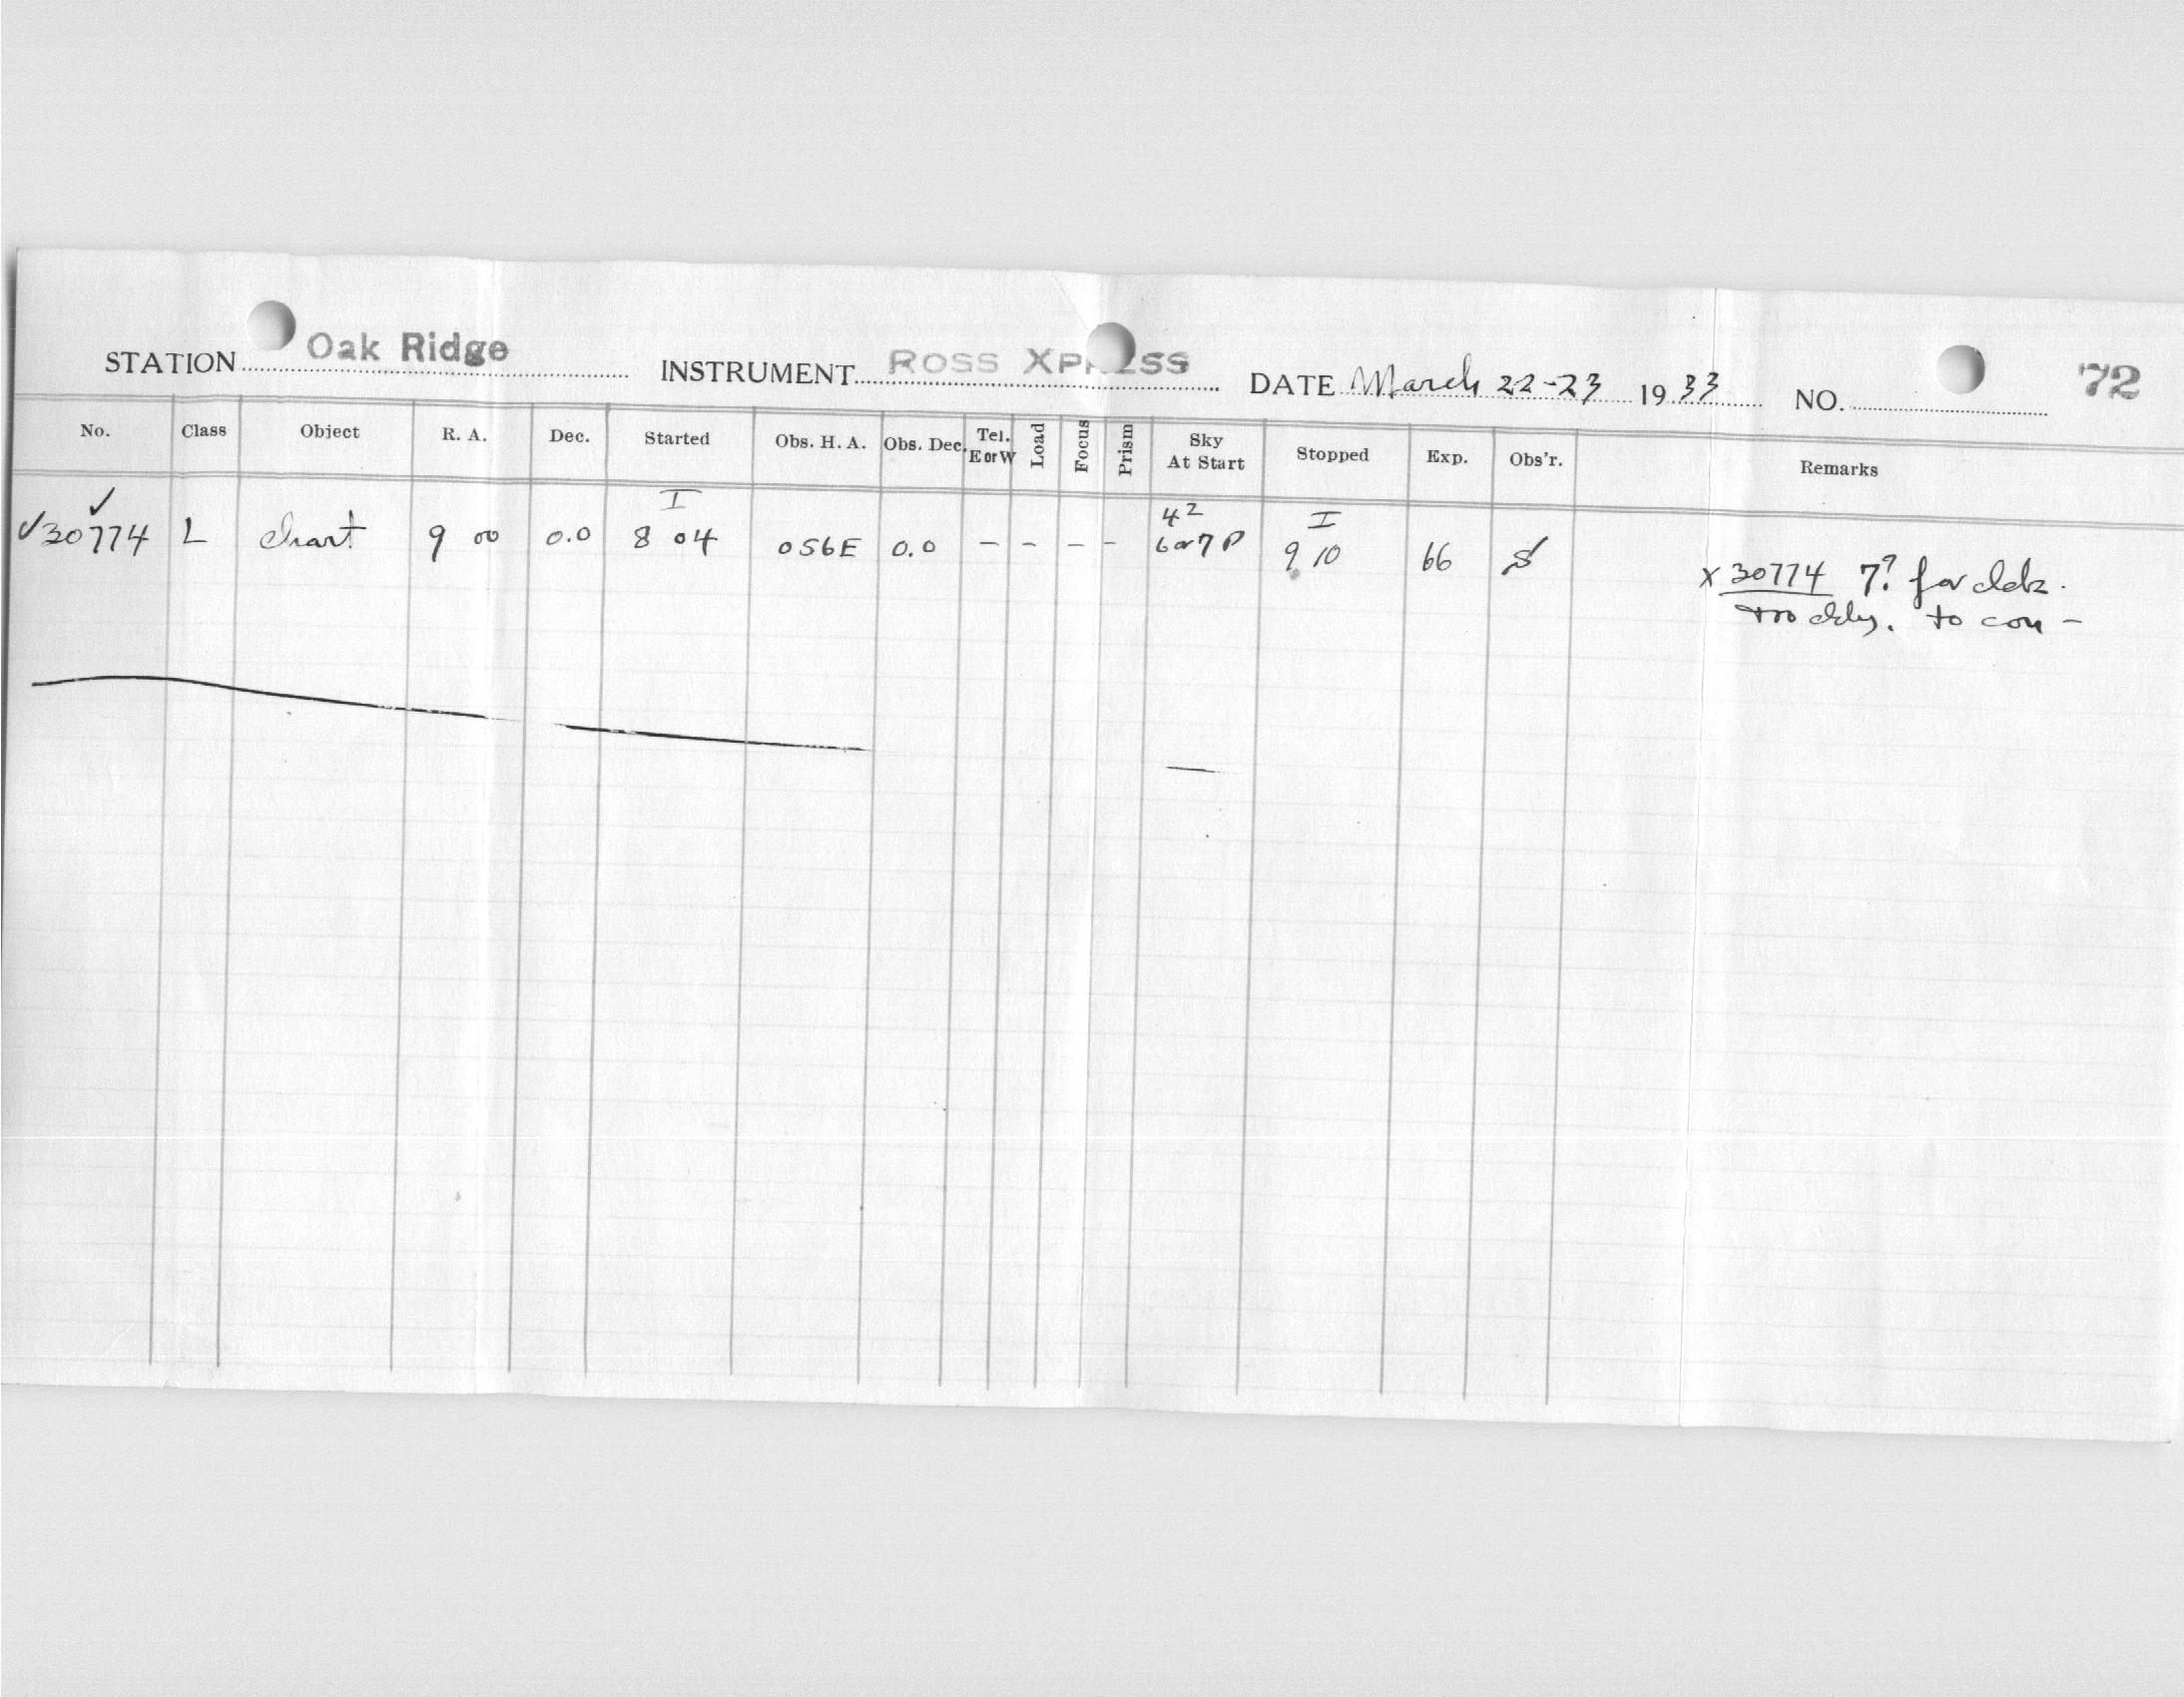 STATION Oak Ridge INSTRUMENT ROSS XPRESS DATE March 22-23 1933 NO. 72
No. Class Object R. A. Dec. Started Obs. H. A. Obs. Dec. Tel. E or W Load Focus Prism Sky At Start Stopped Exp. Obs'r. Remarks
I 4² I
✓30774 L chart 9 00 0.0 8 04 056E 0.0 - - - - 6 or 7 P 9 10 66 S
x 30774 7? for
to con -